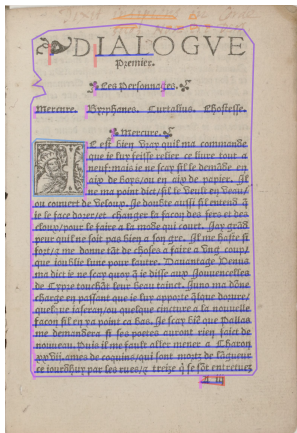 DIALOGVE
Premier.
Les Personnages.
Mercure. Byrphanes. Curtalius. Lhostesse.
Mercure.
IL est bien vray quil ma commandé
que ie luy feisse relier ce liure tout a
neuf: mais ie ne scay sil le demāde en
aix de boys/ou en aix de papier. Il
ne ma point dict/sil le veult en veau/
ou couuert de veloux. Ie doubte aussi sil entend q̄
ie le face dorer/et changer la façon des fers et des
cloux/pour le faire a la mode qui court. Iay grād
peur quil ne soit pas bien a son gre. Il me haste si
fort/& me donne tāt de choses a faire a vng coup/
que ioublie lune pour lautre. Dauantage Venus
ma dict ie ne scay quoy q̄ ie disse aux Iouuencelles
de Cypre touchāt leur beau tainct. Iuno ma dōne
charge en passant que ie luy apporte q̄lque dorure/
quelque iaseran/ou quelque cincture a la nouuelle
facon sil en ya point ca bas. Ie scay biē que Pallas
me demandera si ses poetes auront rien faict de
nouueau. Puis il me fault aller mener a Charon
xxvii. ames de coquins/qui sont mortz de lāgueur
ce iourdhuy par les rues/& treize q̄ se sōt entretuez
A iii